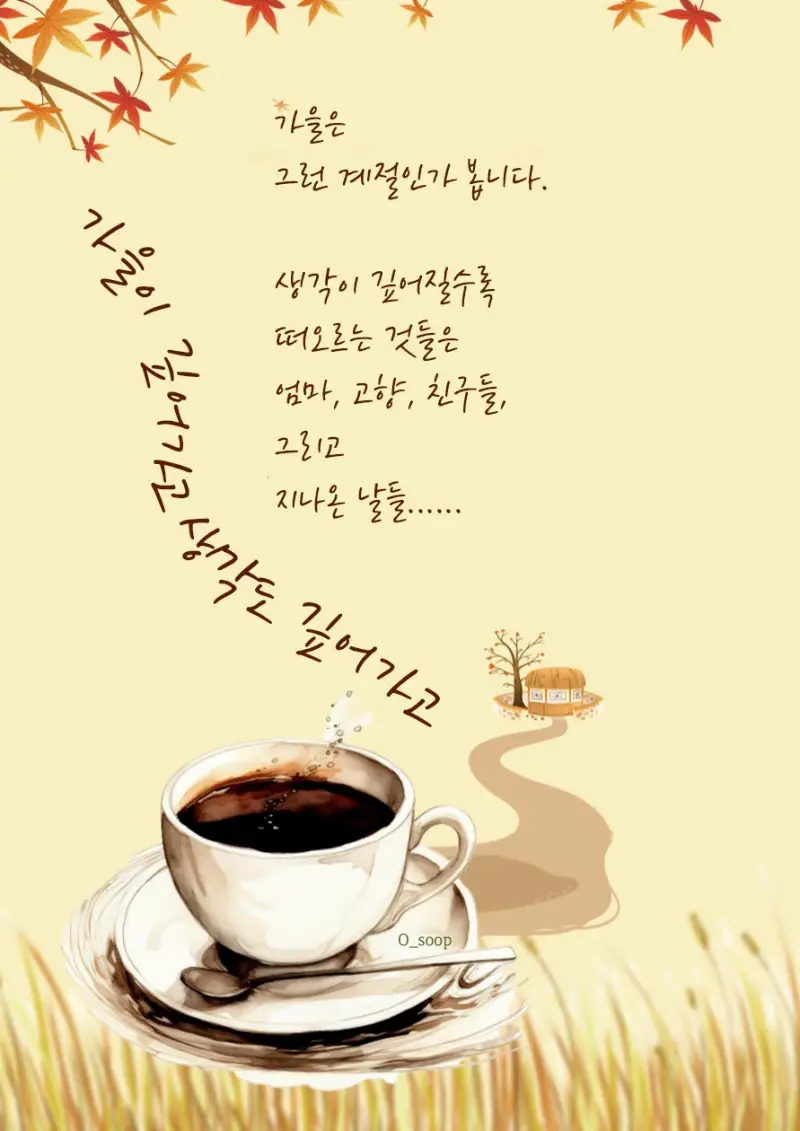 가을은
그런 계절인가 봅니다.
생각이 깊어질수록
떠오르는 것들은
엄마, 고향, 친구들,
그리고
지나온 날들......
가을이 깊어가고 생각도 깊어가고
O_soop